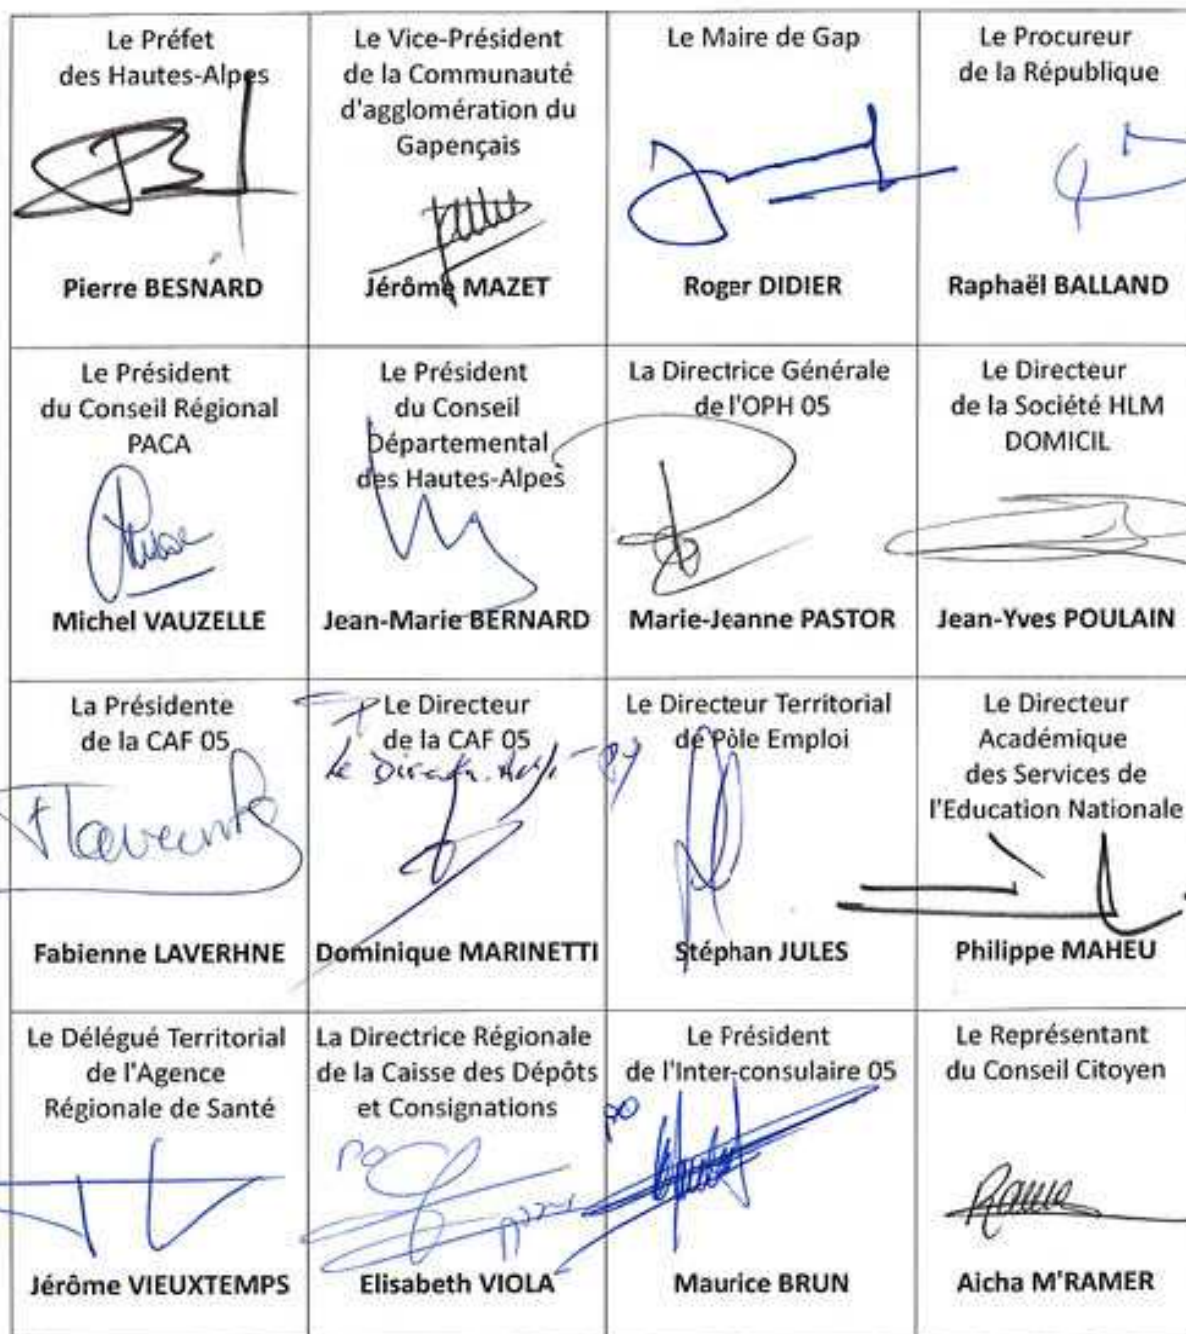 Le Préfet
des Hautes-Alpes
Pierre BESNARD
Le Vice-Président
de la Communauté
d'agglomération du
Gapençais
Jérôme MAZET
Le Maire de Gap
Roger DIDIER
Le Procureur
de la République
Raphaël BALLAND
Le Président
du Conseil Régional
PACA
Michel VAUZELLE
Le Président
du Conseil
Départemental
des Hautes-Alpes
Jean-Marie BERNARD
La Directrice Générale
de l'OPH 05
Marie-Jeanne PASTOR
Le Directeur
de la Société HLM
DOMICIL
Jean-Yves POULAIN
La Présidente
de la CAF 05
Fabienne LAVERHNE
Le Directeur
de la CAF 05
Dominique MARINETTI
Le Directeur Territorial
de Pôle Emploi
Stéphan JULES
Le Directeur
Académique
des Services de
l'Education Nationale
Philippe MAHEU
Le Délégué Territorial
de l'Agence
Régionale de Santé
Jérôme VIEUXTEMPS
La Directrice Régionale
de la Caisse des Dépôts
et Consignations
PO
Elisabeth VIOLA
Le Président
de l'Inter-consulaire 05
PO
Maurice BRUN
Le Représentant
du Conseil Citoyen
Aicha M'RAMER